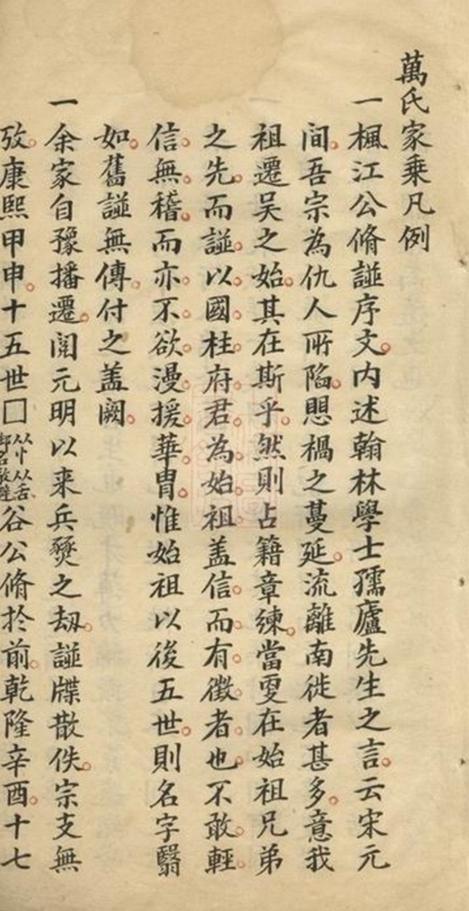 萬氏家乗凡例
一楓江公脩諩序文内述翰林學士孺廬先生之言云宋元
間吾宗為仇人所陷思禍之蔓延流離南徙者甚多意我
祖遷吴之始其在斯乎然則占籍章練當更在始祖兄弟
之先而諩以國柱府君為始祖盖信而有徴者也不敢輕
信無稽而亦不欲漫援華胄惟始祖以後五世則名字翳
如舊諩無傳付之盖闕
一余家自豫播遷閲元明以来兵燹之刼諩牒散佚宗支無
攷康熙甲申十五世□从忄从舌谷公脩於前乾隆辛酉十七